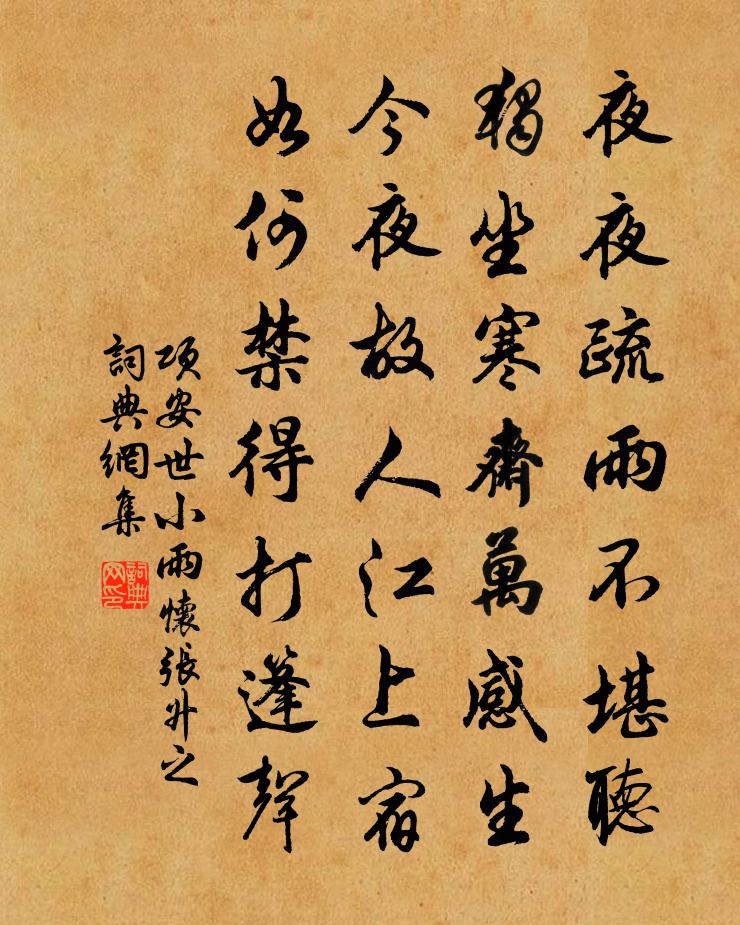 夜夜疏雨不堪聽
獨坐寒齋萬感生
今夜故人江上宿
如何禁得打篷聲
項安世小雨懷張升之
詞典網集
詞典網印